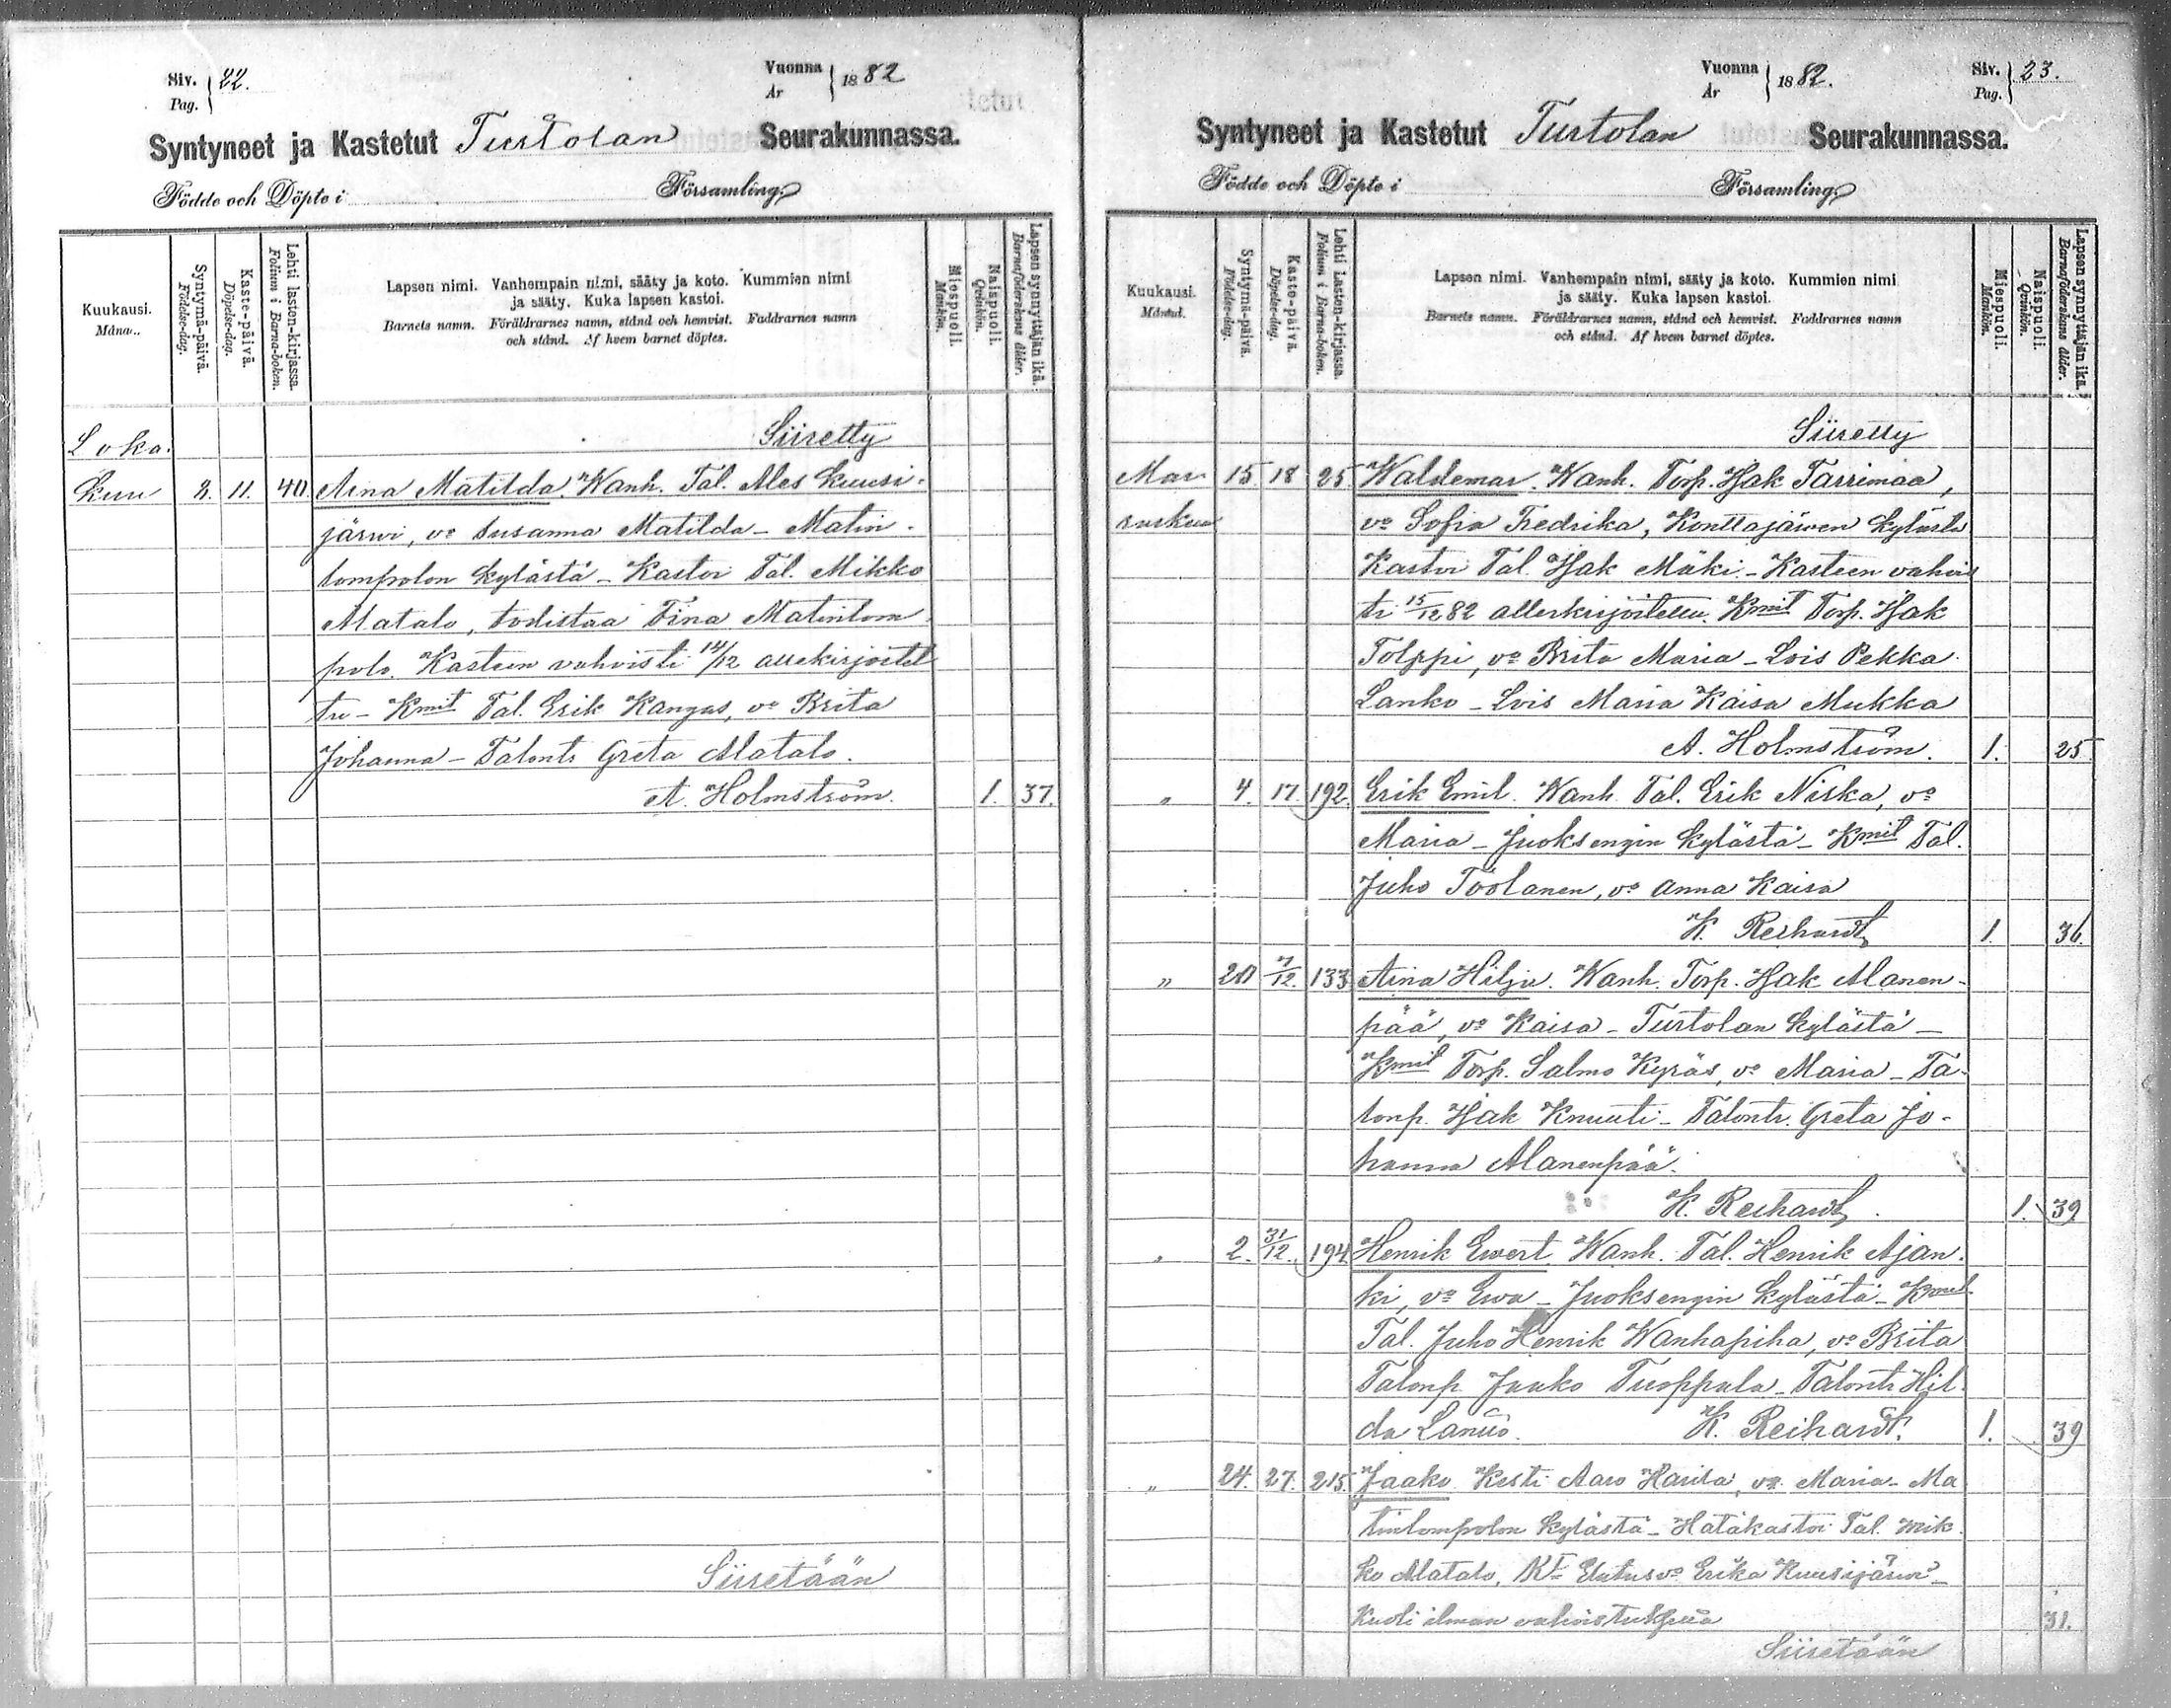 Siv. Pag. 22.
Vuonna År 1882
Syntyneet ja Kastetut Turtolan Seurakunnassa.
Födde och Döpte i Församling.
Kuukausi. Månad.
Syntymä-päivä. Födelse-dag.
Kaste-päivä. Döpelse-dag.
Lehti lasten-kirjassa. Folium i Barna-boken.
Lapsen nimi. Vanhempain nimi, sääty ja koto. Kummien nimi
ja sääty. Kuka lapsen kastoi.
Barnets namn. Föräldrarnes namn, stånd och hemvist. Faddrarnes namn
och stånd. Af hvem barnet döptes.
Miespuoli. Mankön.
Naispuoli. Qvinkön.
Lapsen synnyttäjän ikä. Barnaföderskans ålder.
Loka. Siiretty
kuu 2. 11. 40. Aina Matilda. Wanh. Tal. Ales Kuusi-
järwi, vo Susanna Matilda - Matin-
lompolon kylästä - Kastoi Tal. Mikko
Alatalo, todistaa Fina Matinlom
polo. Kasteen vahvisti 14/12 allekirjoitet
tu - Kmit Tal. Erik Kangas, vo Brita
Johanna - Talontr Greta Alatalo.
A. Holmström. 1. 37.
Siiretään
Vuonna År 1882.
Siv. Pag. 23.
Syntyneet ja Kastetut Turtolan Seurakunnassa.
Födde och Döpte i Församling.
Kuukausi. Månad.
Syntymä-päivä. Födelse-dag.
Kaste-päivä. Döpelse-dag.
Lehti Lasten-kirjassa. Folium i Barna-boken.
Lapsen nimi. Vanhempain nimi, sääty ja koto. Kummien nimi
ja sääty. Kuka lapsen kastoi.
Barnets namn. Föräldrarnes namn, stånd och hemvist. Faddrarnes namn
och stånd. Af hvem barnet döptes.
Miespuoli. Mankön.
Naispuoli. Qvinkön.
Lapsen synnyttäjän ikä. Barnaföderskans ålder.
Siiretty
Mar 15 18 25 Waldemar. Wanh. Torp. Hjak Tarrimaa,
raskuu vo Sofia Fredrika, Konttajärwen kylästä
Kastoi Tal. Hjak Mäki - Kasteen vahvis
ti 15/12 82 allekirjoitettu. Kmit Torp. Hjak
Tolppi, vo Brita Maria - Lois Pekka
Lanko - Lois Maria Kaisa Mukka
A. Holmström. 1. 25
„ 4. 17. 192. Erik Emil. Wanh. Tal. Erik Niska, vo
Maria - Juoksengin kylästä - Kmit Tal.
Juho Töolanen, vo Anna Kaisa
K. Reihardt 1. 36.
„ 20 7/12. 133 Aina Hilja. Wanh. Torp. Hjak Alanen-
pää, vo Kaisa - Turtolan kylästä -
Kmit Torp. Salmo Kyräs, vo Maria - Ta-
lonp. Hjak Knuuti - Talontr. Greta Jo-
hanna Alanenpää.
K. Reihardt. 1. 39
„ 2. 31/12. 194 Henrik Ewert. Wanh. Tal. Henrik Ajan-
ki, vo Ewa - Juoksengin kylästä - Kmit
Tal. Juho Henrik Wanhapiha, vo Brita
Talonp. Jaako Tuoppala - Talontr Hil-
da K. Reihardt. 1. 39
„ 24. 27. 215. Jaako Kesti Aaro vo Maria - Ma
tinlompolon kylästä - Hätäkastoi Tal. Mik
ko Alatalo, vo Erika Kuusijärwi -
Kuoli ilman vahvistuksetta 31.
Siiretään